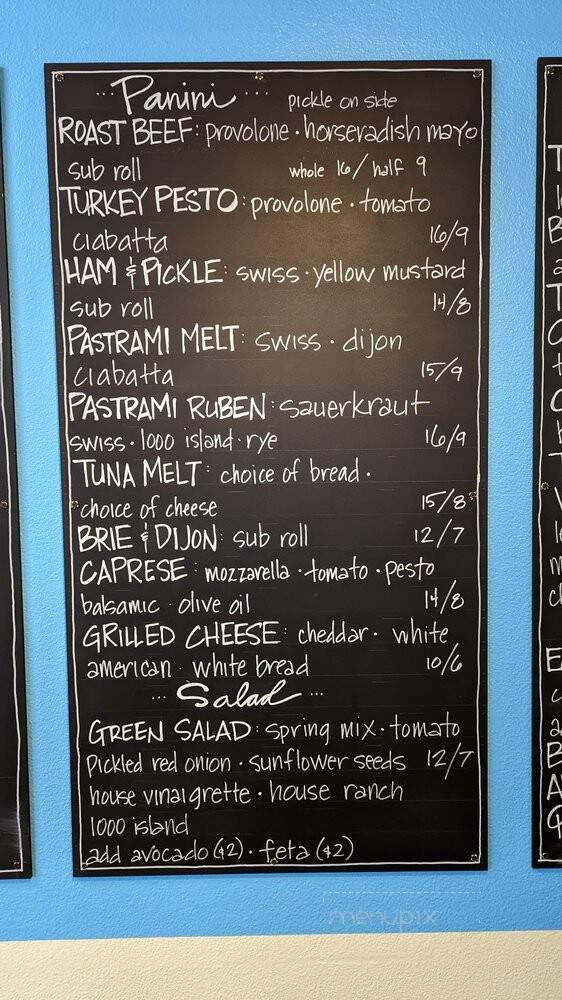 ... Panini ... pickle on side
ROAST BEEF: provolone · horseradish mayo
sub roll whole 16/ half 9
TURKEY PESTO: provolone · tomato
ciabatta 16/9
HAM & PICKLE: swiss · yellow mustard
sub roll 14/8
PASTRAMI MELT: swiss · dijon
ciabatta 15/9
PASTRAMI RUBEN: sauerkraut
swiss · 1000 island · rye 16/9
TUNA MELT: choice of bread ·
choice of cheese 15/8
BRIE & DIJON: sub roll 12/7
CAPRESE: mozzarella · tomato · pesto
balsamic · olive oil 14/8
GRILLED CHEESE: cheddar · white
american · white bread 10/6
... Salad ...
GREEN SALAD: spring mix · tomato
Pickled red onion · sunflower seeds 12/7
house vinaigrette · house ranch
1000 island
add avocado ($2) · feta ($2)
menupix